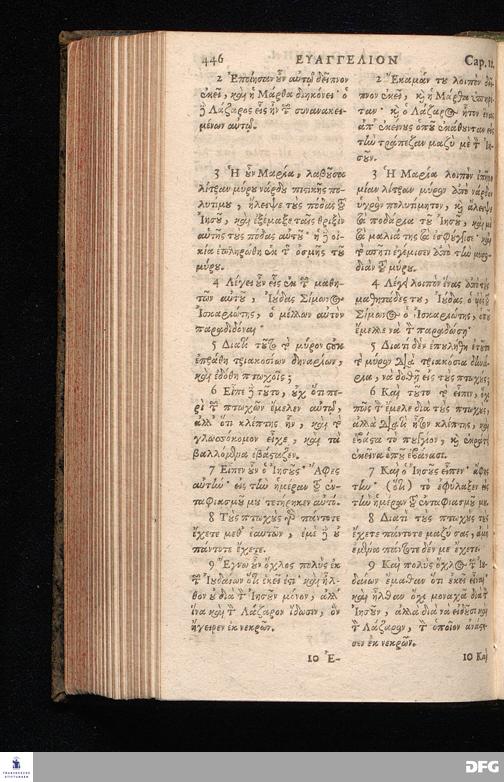 446
ΕΥΑΓΓΕΛΙΟΝ
Cap. 12.
2 Ἐποίησαν οὖν αὐτῷ δεῖπνον
ἐκεῖ, καὶ ἡ Μάρθα διηκόνει· ὁ
δὲ Λάζαρος εἷς ἦν τῶν συνανακει-
μένων αὐτῷ.
3 Ἡ οὖν Μαρία, λαβοῦσα
λίτραν μύρου νάρδου πιστικῆς πο-
λυτίμου, ἤλειψε τοὺς πόδας τοῦ
Ἰησοῦ, καὶ ἐξέμαξε ταῖς θριξὶν
αὐτῆς τοὺς πόδας αὐτοῦ· ἡ δὲ οἰ-
κία ἐπληρώθη ἐκ τῆς ὀσμῆς τοῦ
μύρου.
4 Λέγει οὖν εἷς ἐκ τῶν μαθη-
τῶν αὐτοῦ, Ἰούδας Σίμωνος
Ἰσκαριώτης, ὁ μέλλων αὐτὸν
παραδιδόναι·
5 Διατί τοῦτο τὸ μύρον οὐκ
ἐπράθη τριακοσίων δηναρίων,
καὶ ἐδόθη πτωχοῖς;
6 Εἶπε δὲ τοῦτο, οὐχ ὅτι πε-
ρὶ τῶν πτωχῶν ἔμελεν αὐτῷ,
ἀλλ' ὅτι κλέπτης ἦν, καὶ τὸ
γλωσσόκομον εἶχε, καὶ τὰ
βαλλόμενα ἐβάσταζεν.
7 Εἶπεν οὖν ὁ Ἰησοῦς· Ἄφες
αὐτήν· εἰς τὴν ἡμέραν τοῦ ἐν-
ταφιασμοῦ μου τετήρηκεν αὐτό.
8 Τοὺς πτωχοὺς γὰρ πάντοτε
ἔχετε μεθ' ἑαυτῶν, ἐμὲ δὲ οὐ
πάντοτε ἔχετε.
9 Ἔγνω οὖν ὄχλος πολὺς ἐκ
τῶν Ἰουδαίων ὅτι ἐκεῖ ἐστι· καὶ ἦλ-
θον οὐ διὰ τὸν Ἰησοῦν μόνον, ἀλλ'
ἵνα καὶ τὸν Λάζαρον ἴδωσιν, ὃν
ἤγειρεν ἐκ νεκρῶν.
10 Ἐ-
2 Ἔκαμάν του λοιπὸν
πνον ἐκεῖ, καὶ ἡ Μάρθα
ταν· καὶ ὁ Λάζαρος ἦτον ἕνας
ἀπ' ἐκείνους ὁποῦ ἐκάθουνταν
τὴν τράπεζαν μαζὺ μὲ τὸν Ἰη-
σοῦν.
3 Ἡ Μαρία λοιπὸν
μίαν λίτραν μύρον ἀπὸ νάρδον
ὑγρὸν πολυτίμητον, καὶ ἄλειψε
τὰ ποδάρια τοῦ Ἰησοῦ, καὶ μὲ
τὰ μαλιά της τὰ ἐσφούγγισε· καὶ
τὸ σπῆτι ἐγέμισεν ἀπὸ τὴν
διὰν τοῦ μύρου.
4 Λέγει λοιπὸν ἕνας ἀπὸ τοὺς
μαθητάδες του, Ἰούδας ὁ υἱὸς τοῦ
Σίμωνος ὁ Ἰσκαριώτης,
ἔμελλε νὰ τὸν παραδώσῃ·
5 Διατί δὲν ἐπουλήθη ἐτοῦτο
τὸ μύρον διὰ τριακόσια δηνά-
ρια, νὰ δοθῇ εἰς τοὺς πτωχούς;
6 Καὶ τοῦτο τὸ εἶπεν, ὄχι
πῶς τὸν ἔμελε διὰ τοὺς πτωχούς,
ἀλλὰ διατὶ ἦτον κλέπτης, καὶ
ἐβάστα τὸ πουγγίον, καὶ ἐκράτει
ἐκεῖνα ὁποῦ ἐβάνασι.
7 Καὶ ὁ Ἰησοῦς εἶπεν· ἄφες
την· (ὅτι) τὸ ἐφύλαξεν εἰς
τὴν ἡμέραν τοῦ ἐνταφιασμοῦ μου.
8 Διατὶ τοὺς πτωχοὺς τοὺς
ἔχετε πάντοτε μαζύ σας,
ἐμένα πάντοτε δέν με ἔχετε.
9 Καὶ πολὺς ὄχλος τῶν Ἰου-
δαίων ἔμαθαν ὅτι ἐκεῖ εἶναι·
καὶ ἦλθαν ὄχι μοναχὰ διὰ τὸν
Ἰησοῦν, ἀλλὰ διὰ νὰ εἰδοῦσι καὶ
τὸν Λάζαρον, τὸν ὁποῖον ἀνάστη-
σεν ἐκ νεκρῶν.
10 Καὶ
DFG